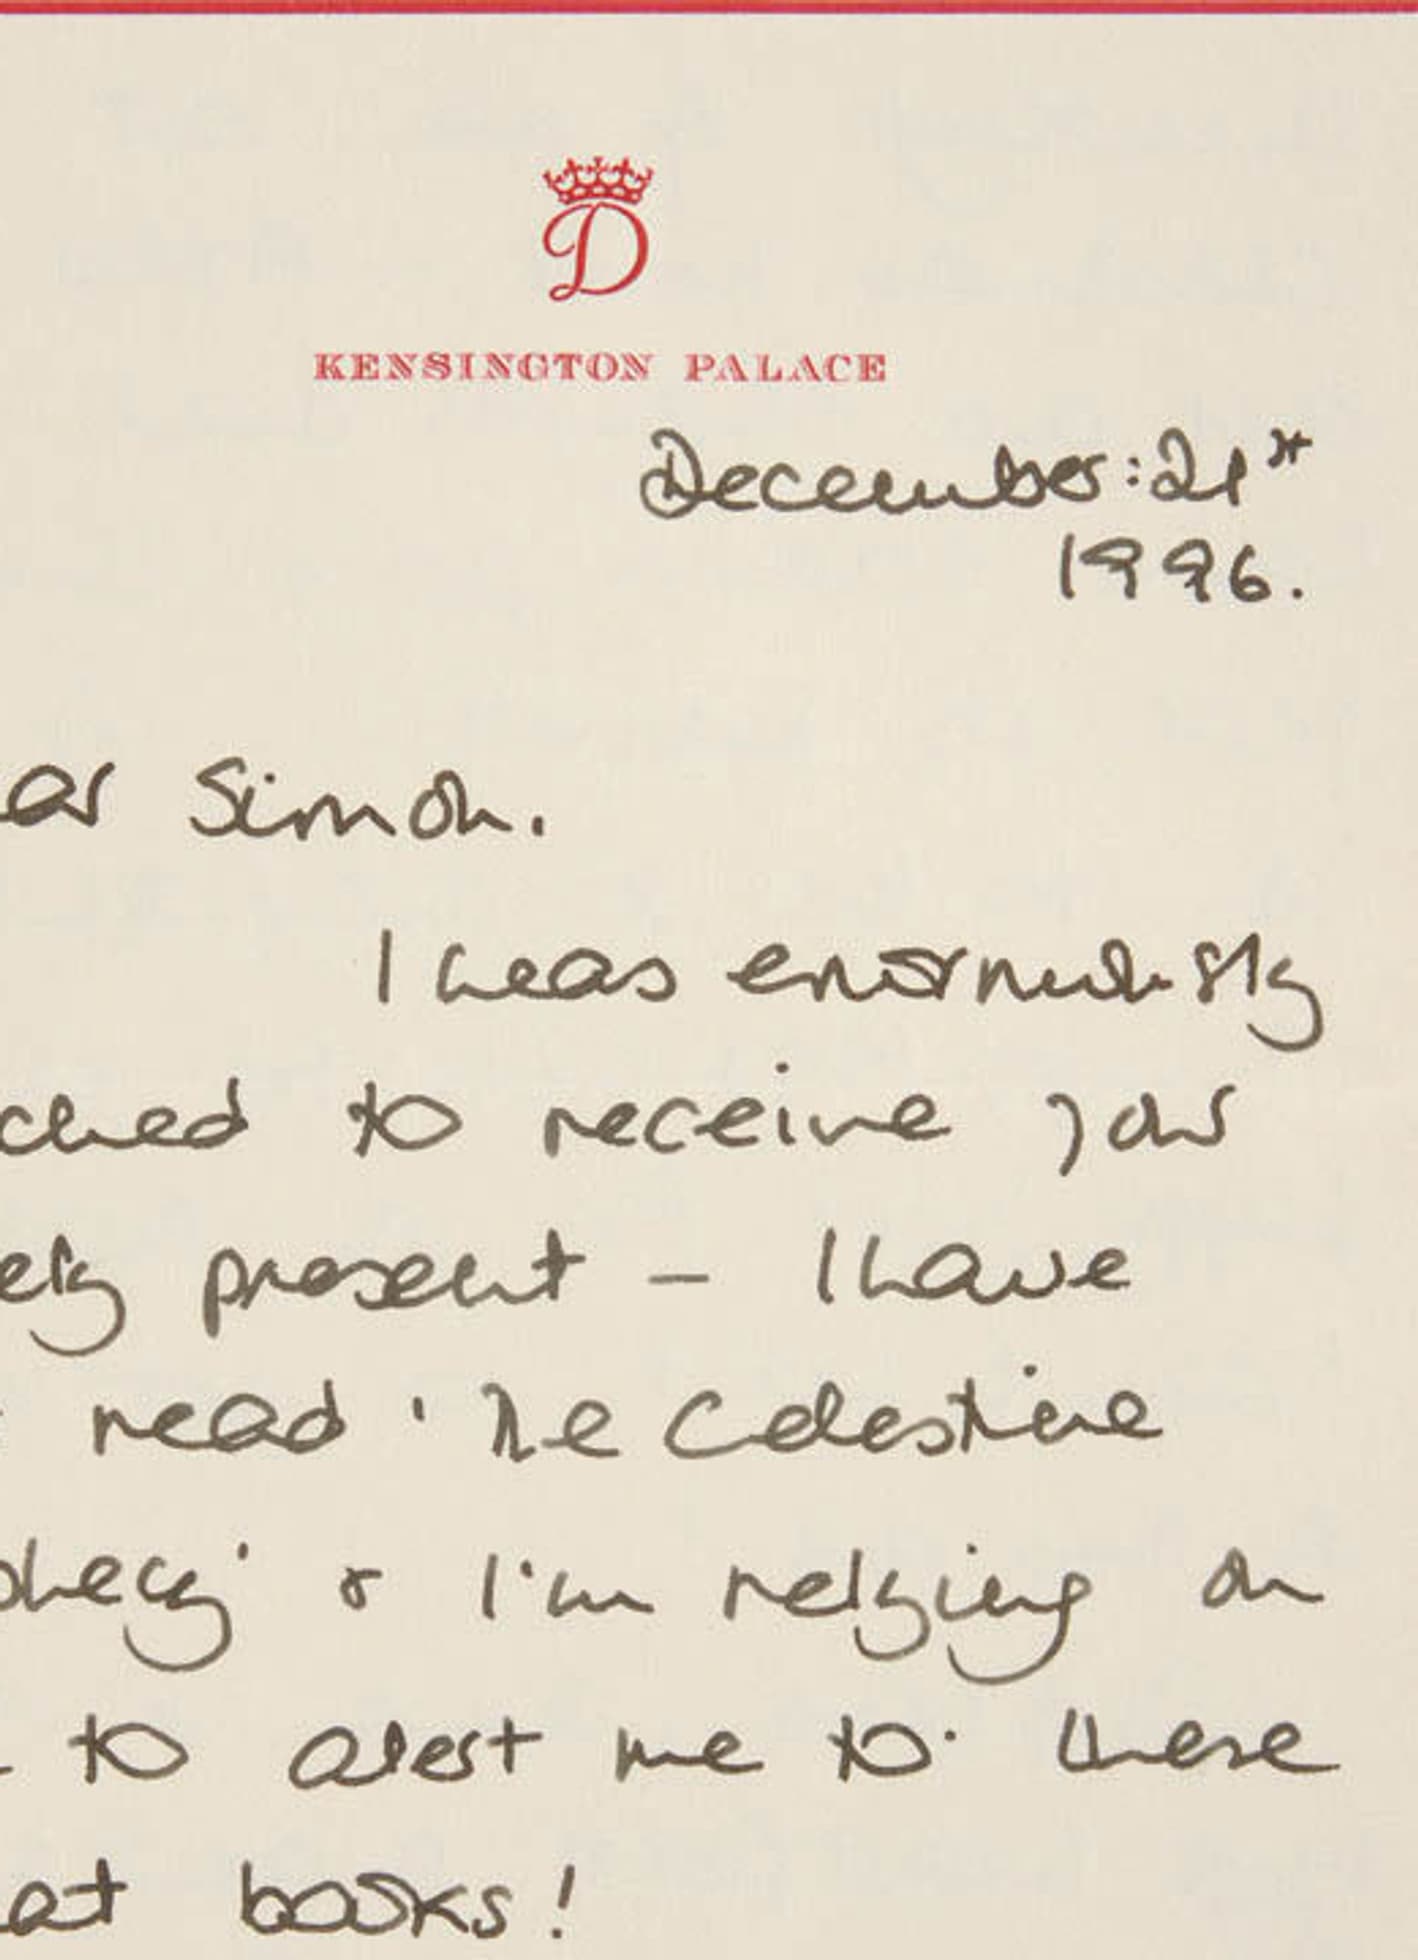 D
KENSINGTON PALACE
December: 21st
1996.
ar Simon.
I was enormously
ched to receive your
ely present – I have
read 'The Celestine
phecy' & I'm relying on
to alert me to these
at books!